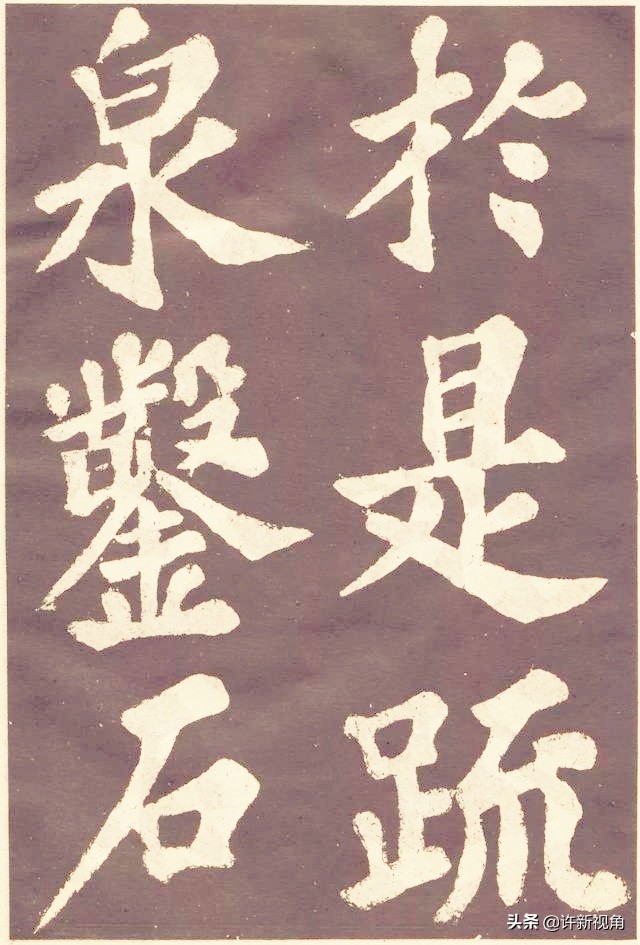 於是疏
泉鑿石
头条 @许新视角